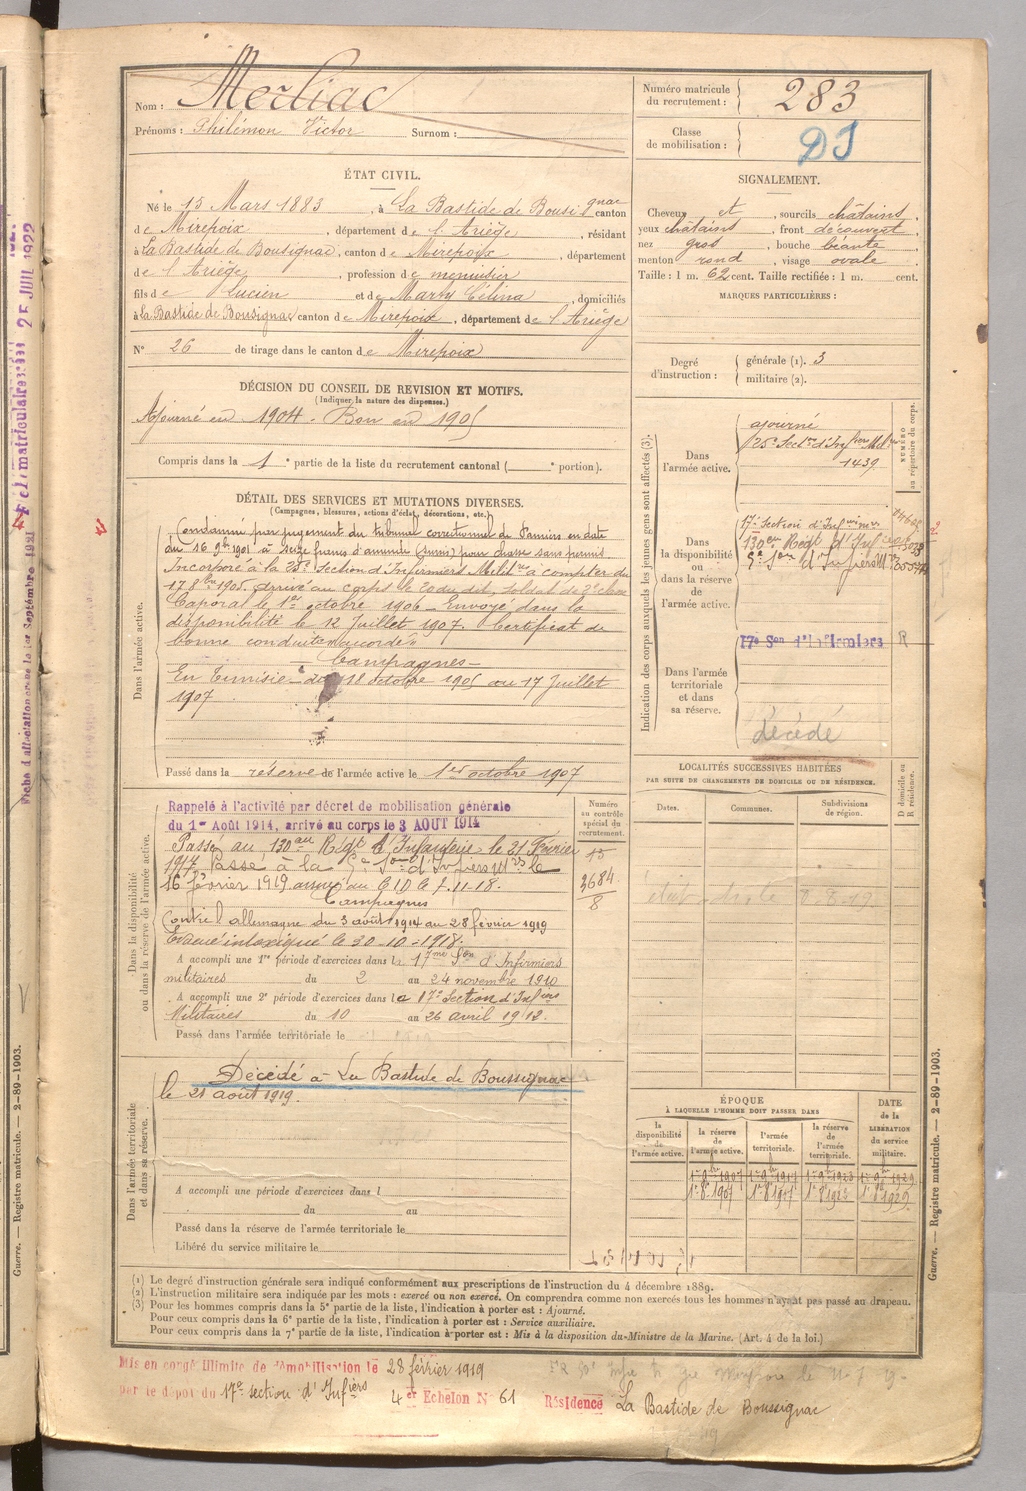 Nom : Merliac
Prénoms : Philémon Victor Surnom :
ÉTAT CIVIL.
Né le 15 Mars 1883, à La Bastide de Bousignac canton
de Mirepoix, département de l'Ariège, résidant
à La Bastide de Bousignac, canton de Mirepoix, département
de l'Ariège, profession de menuisier
fils de Lucien et de Marty Célina, domiciliés
à la Bastide de Bousignac canton de Mirepoix, département de l'Ariège
N° 26 de tirage dans le canton de Mirepoix
DÉCISION DU CONSEIL DE REVISION ET MOTIFS.
(Indiquer la nature des dispenses.)
Ajourné en 1904 - Bon en 1905
Compris dans la 1e partie de la liste du recrutement cantonal ( e portion).
DÉTAIL DES SERVICES ET MUTATIONS DIVERSES.
(Campagnes, blessures, actions d'éclat, décorations, etc.)
Dans l'armée active.
Condamné par jugement du tribunal correctionnel de Pamiers en date
du 16 9bre 1901 à seize francs d'amende (sursis) pour chasse sans permis
Incorporé à la 25e Section d'Infirmiers Militres à compter du
17 8bre 1905. arrivé au corps le 20 du dit, soldat de 2e classe
Caporal le 1er octobre 1906 - Envoyé dans la
disponibilité le 12 Juillet 1907. Certificat de
bonne conduite "accordé"
- Campagnes -
En Tunisie - du 18 octobre 1905 au 17 Juillet
1907
Passé dans la réserve de l'armée active le 1er octobre 1907
Dans la disponibilité
ou dans la réserve de l'armée active.
Rappelé à l'activité par décret de mobilisation générale
du 1er Août 1914, arrivé au corps le 3 AOUT 1914
Passé au 130eme Régt d'Infanterie le 21 Février
1917 Passé à la 5e Son d'Infiers Mres le
16 février 1919
Campagnes
Contre l'allemagne du 3 août 1914 au 28 février 1919
Evacué intoxiqué le 20-10-1918.
A accompli une 1re période d'exercices dans la 17me Son d'Infirmiers
militaires du 2 au 24 novembre 1910
A accompli une 2e période d'exercices dans la 17e Section d'Infiers
Militaires du 10 au 26 avril 1912.
Passé dans l'armée territoriale le
Dans l'armée territoriale
et dans sa réserve.
Décédé à La Bastide de Boussignac
le 21 août 1919.
A accompli une période d'exercices dans l
du au
Passé dans la réserve de l'armée territoriale le
Libéré du service militaire le
Numéro
au contrôle
spécial du
recrutement.
15
3684
8
Numéro matricule
du recrutement : 283
Classe
de mobilisation : DI
SIGNALEMENT.
Cheveux et, sourcils châtains,
yeux châtains, front découvert,
nez gros, bouche béante,
menton rond, visage ovale.
Taille : 1 m. 62 cent. Taille rectifiée : 1 m. cent.
MARQUES PARTICULIÈRES :
Degré
d'instruction :
générale (1). 3
militaire (2).
Indication des corps auxquels les jeunes gens sont affectés (3).
NUMÉRO
au répertoire du corps.
Dans
l'armée active.
ajourné
25e Section d'Infiers Mil
1439
Dans
la disponibilité
ou
dans la réserve
de
l'armée active.
17e Section d'Infirmiers
130eme Régt d'Infie
5e Son d'Infiers M
Dans l'armée
territoriale
et dans
sa réserve.
17e Son d'Infirmiers R
décédé
LOCALITÉS SUCCESSIVES HABITÉES
PAR SUITE DE CHANGEMENTS DE DOMICILE OU DE RÉSIDENCE.
D domicile ou
R résidence.
Dates.
Communes.
Subdivisions
de région.
ÉPOQUE
À LAQUELLE L'HOMME DOIT PASSER DANS
DATE
de la
LIBÉRATION
du service
militaire.
la
disponibilité
de
l'armée active.
la réserve
de
l'armée active.
l'armée
territoriale.
la réserve
de
l'armée
territoriale.
(1) Le degré d'instruction générale sera indiqué conformément aux prescriptions de l'instruction du 4 décembre 1889.
(2) L'instruction militaire sera indiquée par les mots : exercé ou non exercé. On comprendra comme non exercés tous les hommes n'ayant pas passé au drapeau.
(3) Pour les hommes compris dans la 5e partie de la liste, l'indication à porter est : Ajourné.
Pour ceux compris dans la 6e partie de la liste, l'indication à porter est : Service auxiliaire.
Pour ceux compris dans la 7e partie de la liste, l'indication à porter est : Mis à la disposition du Ministre de la Marine. (Art. 4 de la loi.)
Mis en congé illimité de démobilisation le 28 février 1919
par le dépôt du 17e section d'Infiers
4e Echelon N 61 Résidence La Bastide de Boussignac
Guerre. — Registre matricule. — 2-89-1903.
Guerre. — Registre matricule. — 2-89-1903.